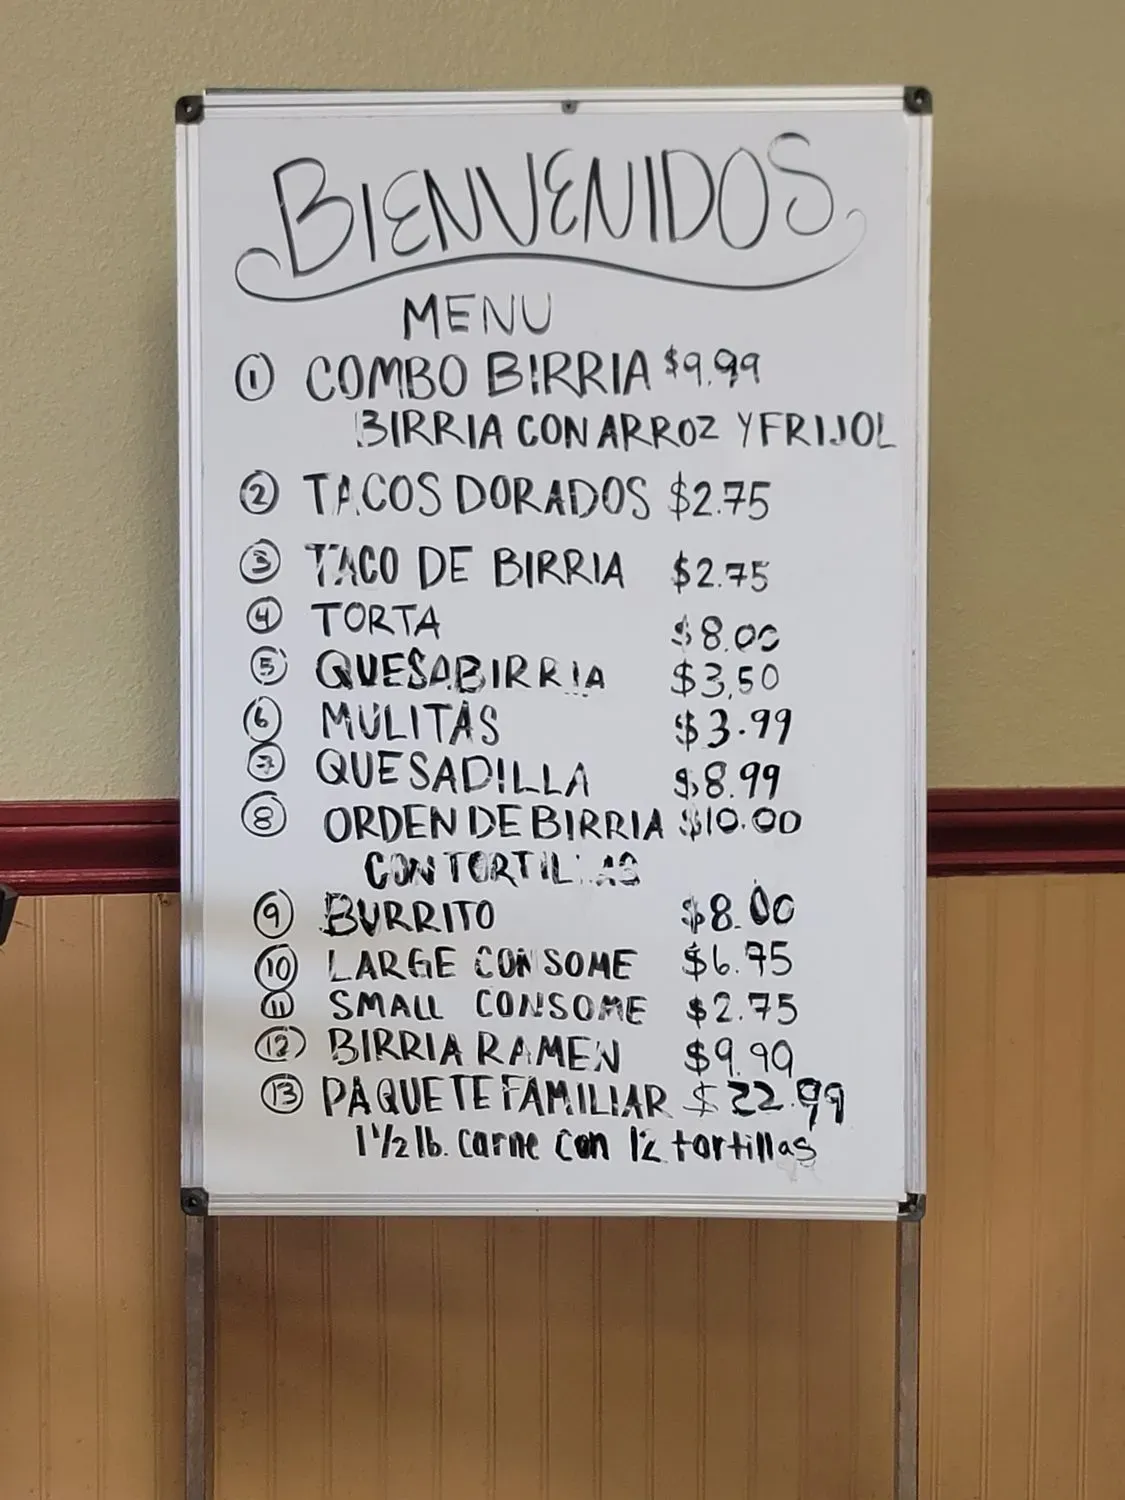 BIENVENIDOS
MENU
1 COMBO BIRRIA $9.99
BIRRIA CON ARROZ Y FRIJOL
2 TACOS DORADOS $2.75
3 TACO DE BIRRIA $2.75
4 TORTA $8.00
5 QUESABIRRIA $3.50
6 MULITAS $3.99
7 QUESADILLA $8.99
8 ORDEN DE BIRRIA $10.00
CON TORTILLAS
9 BURRITO $8.00
10 LARGE CONSOME $6.75
11 SMALL CONSOME $2.75
12 BIRRIA RAMEN $9.99
13 PAQUETE FAMILIAR $22.99
1 1/2 lb. carne con 12 tortillas